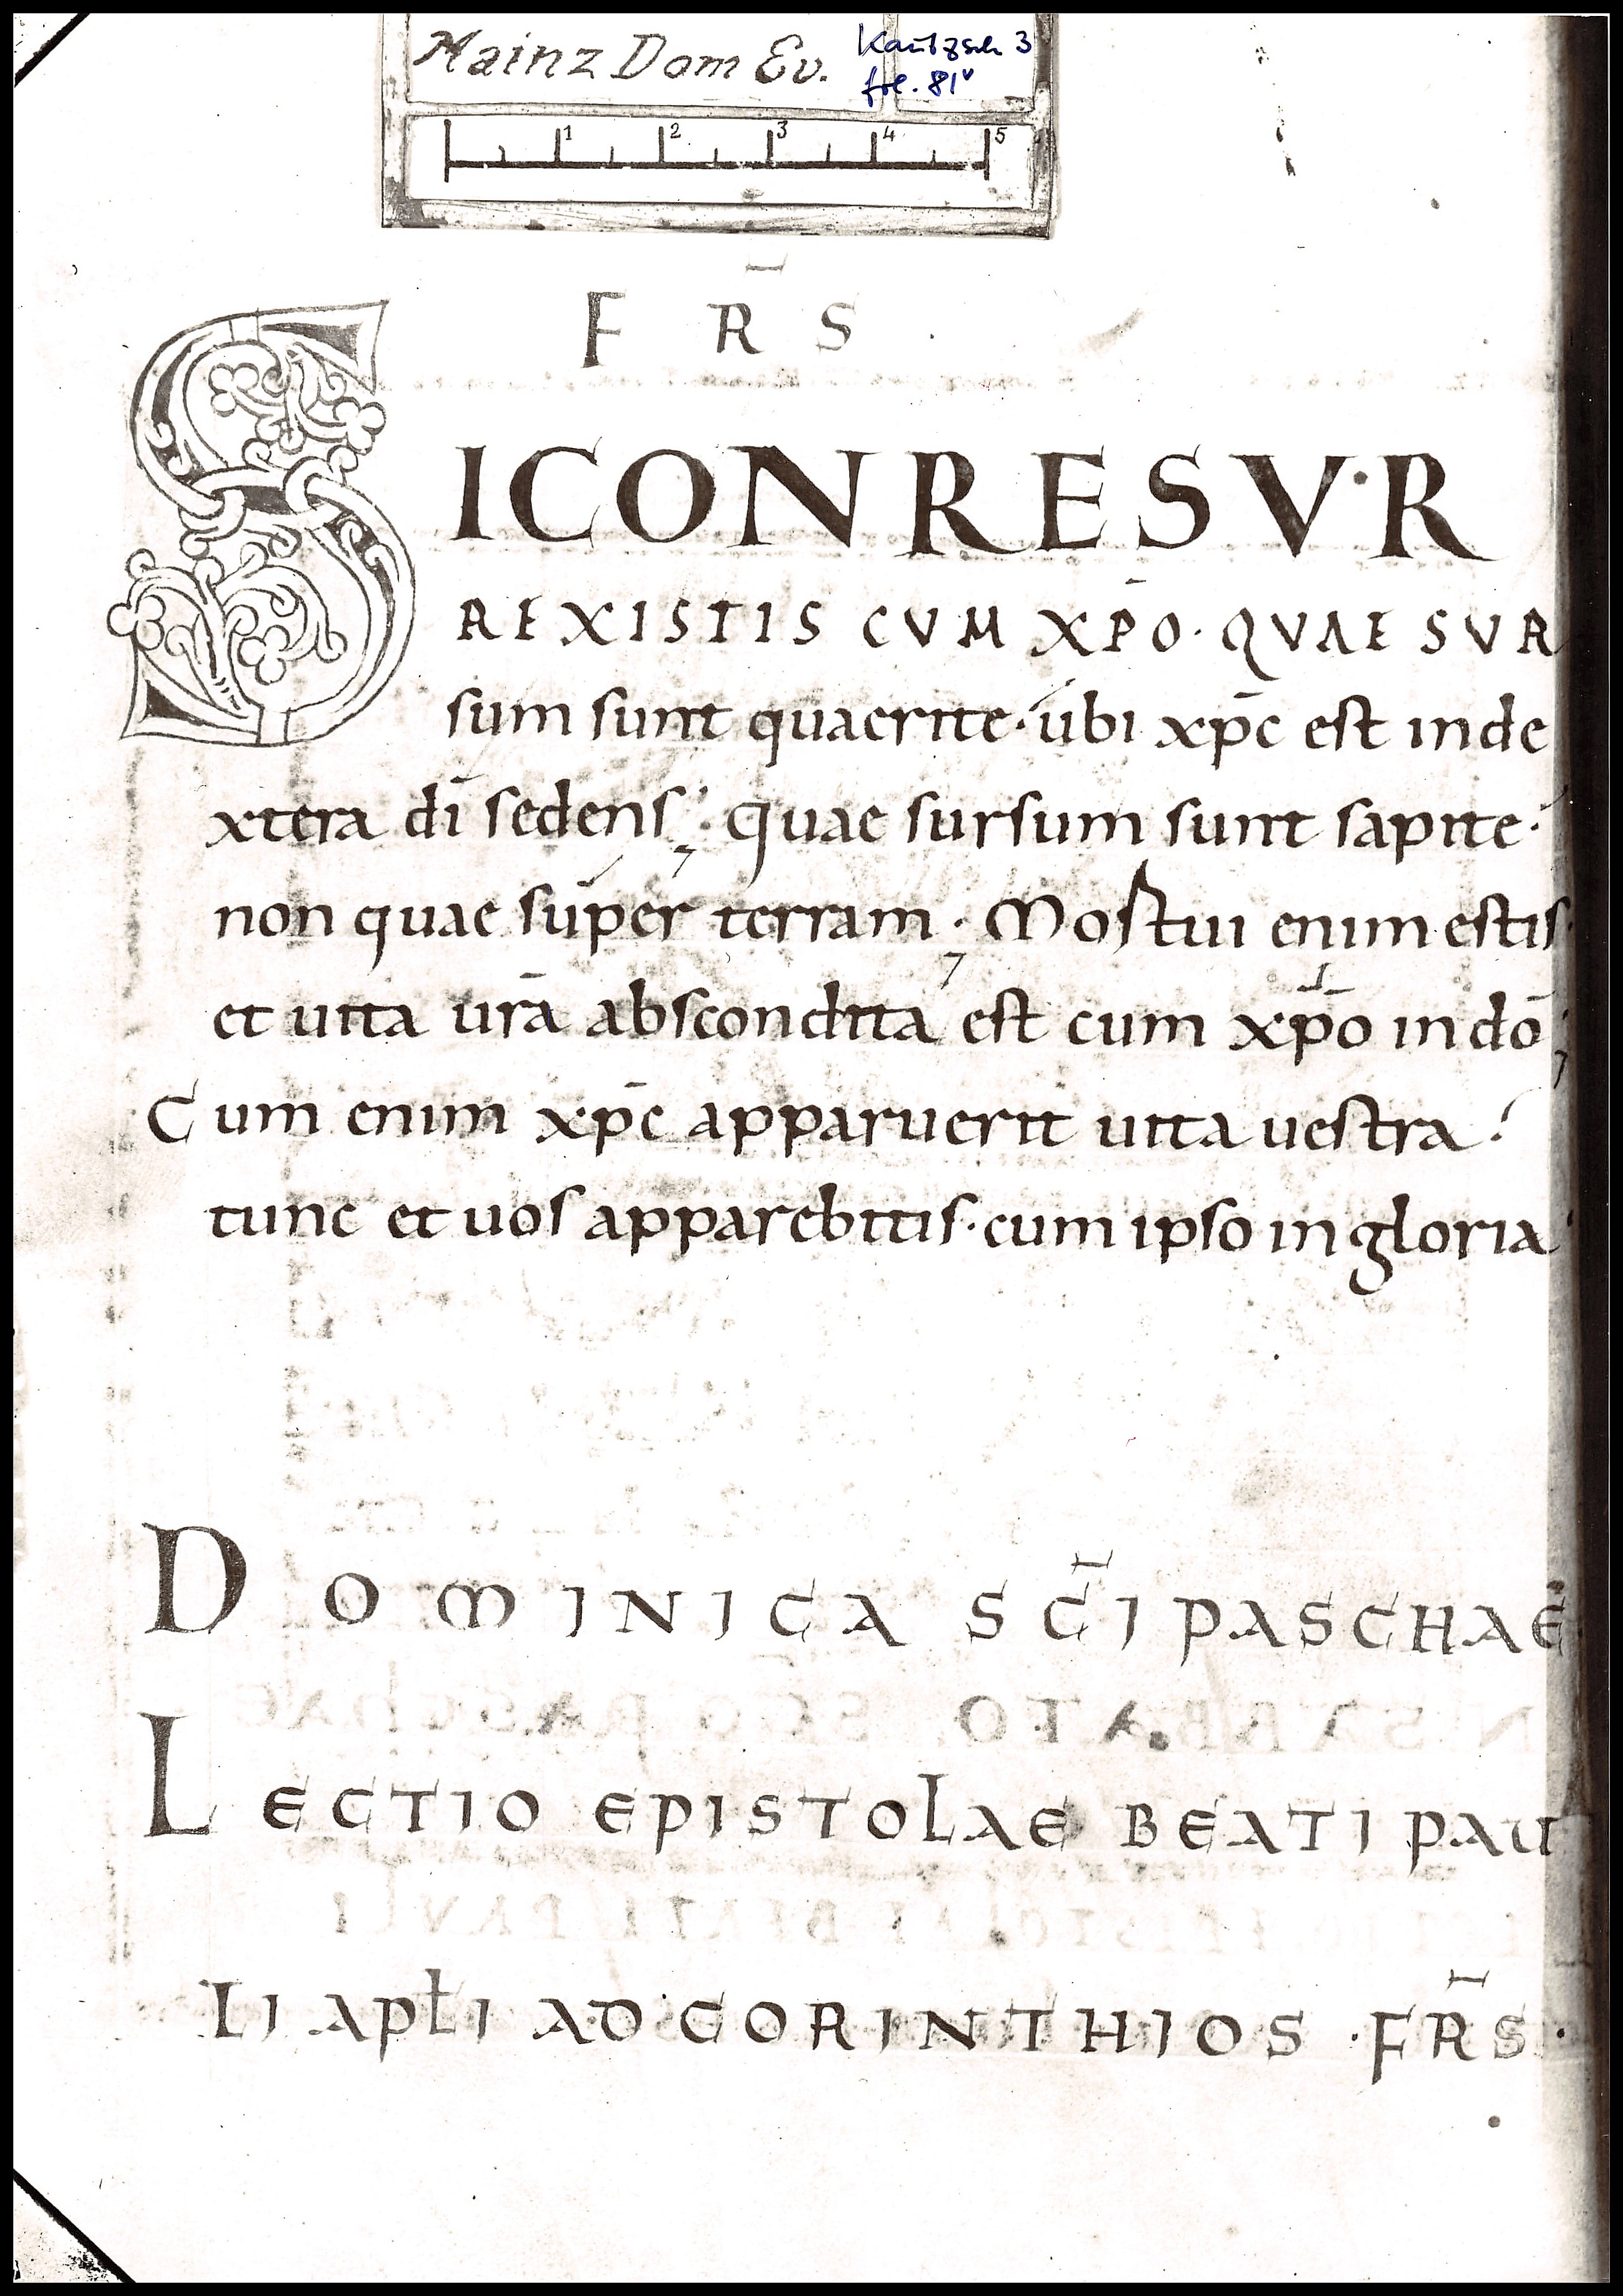 Mainz Dom Ev. Kautzsch 3
fol. 81v
1 2 3 4 5
F R̄ S
SICONRESVR
REXISTIS CVM XP̄O · QVAE SVR
sum sunt quaerite · ubi xp̄c est inde
xtera dī sedens ; quae sursum sunt sapite ·
non quae super terram ; Mortui enim estis ·
et uita urā abscondita est cum xp̄o in dō ;
Cum enim xp̄c apparuerit uita uestra ·
tunc et uos apparebitis · cum ipso in gloria
DOMINICA SC̄I PASCHAE
LECTIO EPISTOLAE BEATI PAU
LI APŁI AD CORINTHIOS · FR̄S ·